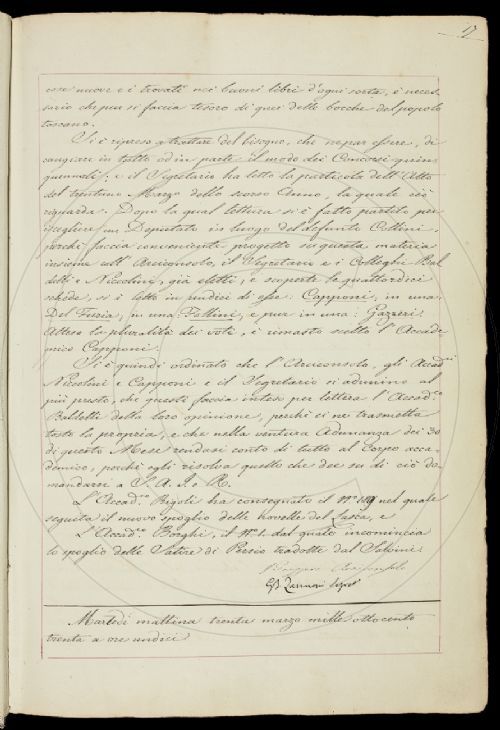 17
cose nuove e i trovati nei buoni libri d'ogni sorta, è neces-
sario che pur si faccia tesoro di quei delle bocche del popolo
toscano.
Si è ripreso a trattare del bisogno, che ne par essere, di
cangiare in tutto od in parte il modo dei Concorsi quin-
quennali: e il Segretario ha letto la particola dell'Atto
del trentuno Marzo dello scorso Anno, la quale ciò
riguarda. Dopo la qual lettura si è fatto partito per
iscegliere un Deputato in luogo del defunto Collini
perché faccia conveniente progetto su questa materia
insieme all'Arciconsolo, il Segretario e i Colleghi Bal
detti e Niccolini, già eletti, e scoperte le quattordici
schede, si è letto in undici di esse: Capponi, in una:
Del Furia, in una: Fallini, e pur in una: Gazzeri.
Attesa la pluralità dei voti, è rimasto scelto l'Accade
mico Capponi.
Si è quindi ordinato che l'Arciconsolo, gli Accad.ci
Niccolini e Capponi e il Segretario si adunino al
più presto, che questi faccia inteso per lettera l'Accad.co
Baldetti della loro opinione, perché ei ne trasmetta
tosto la propria, e che nella ventura Adunanza dei 30
di questo Mese rendasi conto di tutto al Corpo acca-
demico, poiché egli risolva quello che dee su di ciò do-
mandarsi a S. A. I. e R.
L'Accad.co Rigoli ha consegnato il N.o nel quale
seguita il nuovo spoglio delle novelle del Lasca, e
L'Accad.co Borghi, il N.o 1. dal quale incomincia
lo spoglio delle Satire di Persio tradotte dal Salvini.
Arciconsolo
GB Zannoni Segret
Martedì mattina trenta marzo mille ottocento
trenta a ore undici